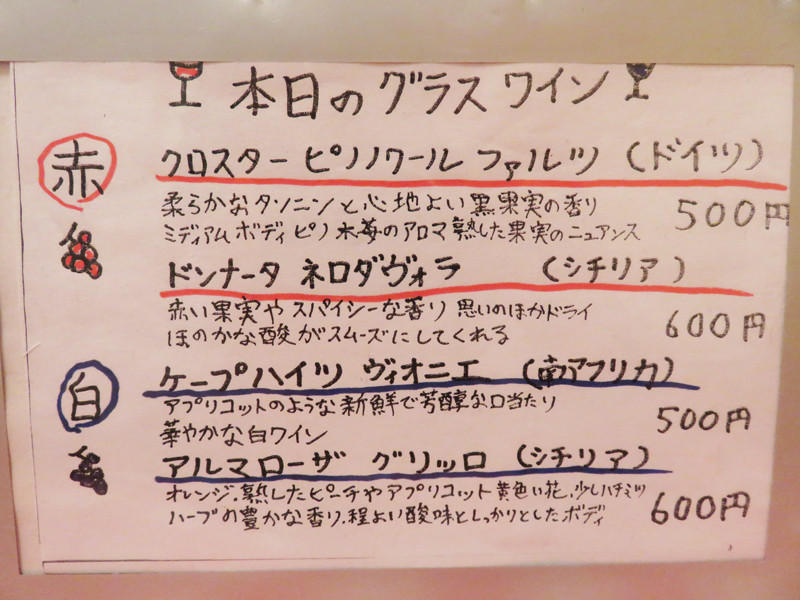 本日のグラスワイン
赤
クロスター ピノノワール ファルツ (ドイツ)
柔らかなタンニンと心地よい黒果実の香り
ミディアムボディ ピノ 木苺のアロマ 熟した果実のニュアンス
500円
ドンナータ ネロダヴォラ (シチリア)
赤い果実やスパイシーな香り 思いのほかドライ
ほのかな酸がスムーズにしてくれる
600円
白
ケープハイツ ヴィオニエ (南アフリカ)
アプリコットのような新鮮で芳醇な口当たり
華やかな白ワイン
500円
アルマローザ グリッロ (シチリア)
オレンジ、熟したピーチやアプリコット 黄色い花、少しハチミツ
ハーブの豊かな香り、程よい酸味としっかりとしたボディ
600円